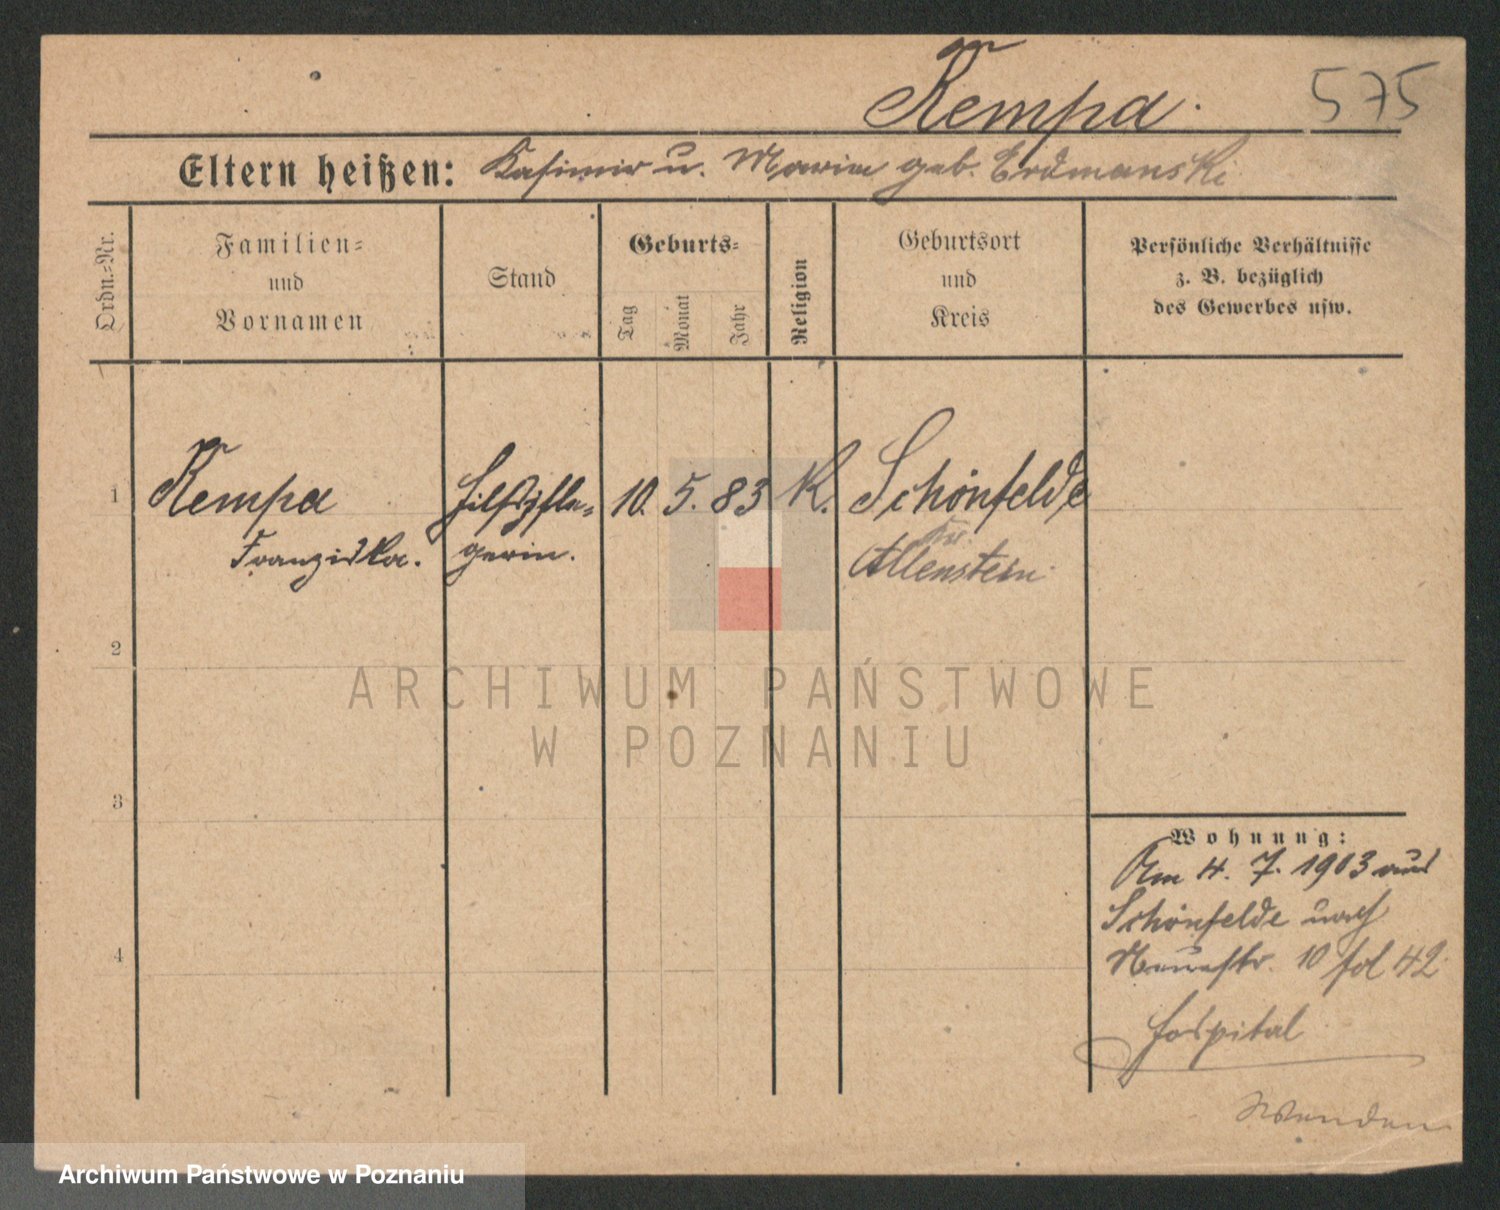 Kempa.
575
Eltern heißen: Kasimir u. Marie geb. Erdmanski
Ordn.=Nr.
Familien=
und
Vornamen
Stand
Geburts=
Tag
Monat
Jahr
Religion
Geburtsort
und
Kreis
Persönliche Verhältnisse
z. B. bezüglich
des Gewerbes usw.
1
Kempa
Franziska.
Hilfspfle=
gerin.
10. 5. 83
K.
Schönfelde
Kr.
Allenstein
2
ARCHIWUM PAŃSTWOWE
W POZNANIU
3
4
Wohnung:
Am 4. 7. 1903 aus
Schönfelde nach
Neuestr. 10 fol 42
Hospital
Wenden
Archiwum Państwowe w Poznaniu